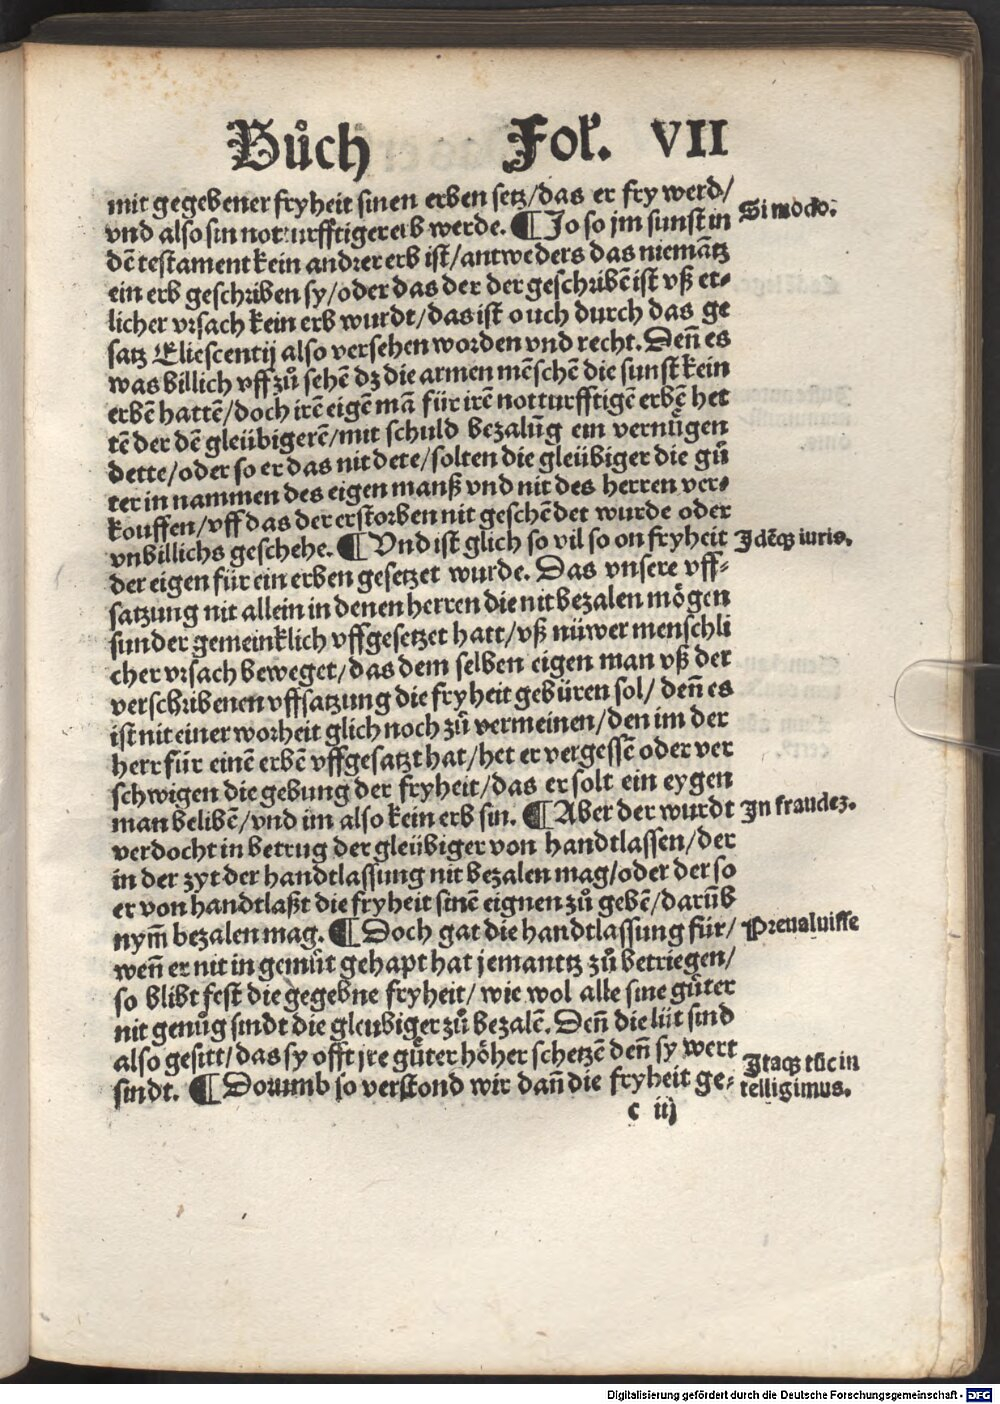 Bůch Fol. VII
mit gegebener fryheit sinen erben setz/das er fry werd/
vnd also sin notturfftiger erb werde. ¶ Jo so jm sunst in
Si modo.
dē testament kein andrer erb ist/antweders das niemātz
ein erb geschriben sy/oder das der der geschribē ist vß et⸗
licher vrsach kein erb wurdt/das ist ouch durch das ge
satz Eliescentij also versehen worden vnd recht. Deñ es
was billich vff zů sehē dz die armen mēschē die sunst kein
erbē hattē/doch irē eigē mā für irē notturfftigē erbē het
tē der dē gleübigerē/mit schuld bezalūg ein vernůgen
dette/oder so er das nit dete/solten die gleübiger die gů
ter in nammen des eigen manß vnd nit des herren ver⸗
kouffen/vff das der erstorben nit geschēdet wurde oder
vnbillichs geschehe. ¶ Vnd ist glich so vil so on fryheit
Jdēqꝫ iuris.
der eigen für ein erben gesetzet wurde. Das vnsere vff⸗
satzung nit allein in denen herren die nit bezalen mögen
sunder gemeinklich vffgesetzet hatt/vß nüwer menschli
cher vrsach beweget/das dem selben eigen man vß der
verschribenen vffsatzung die fryheit gebüren sol/deñ es
ist nit einer worheit glich noch zů vermeinen/den im der
herr für einē erbē vffgesatzt hat/het er vergessē oder ver
schwigen die gebung der fryheit/das er solt ein eygen
man belibē/vnd im also kein erb sin. ¶ Aber der wurdt
Jn fraudeꝫ.
verdocht in betrug der gleübiger von handtlassen/der
in der zyt der handtlassung nit bezalen mag/oder der so
er von handtlaßt die fryheit sinē eignen zů gebē/darūb
nym̄ bezalen mag. ¶ Doch gat die handtlassung für/
Preualuisse
weñ er nit in gemůt gehapt hat jemantz zů betriegen/
so blibt fest die gegebne fryheit/wie wol alle sine gůter
nit genůg sindt die gleubiger zů bezalē. Deñ die lüt sind
also gesitt/das sy offt jre gůter höher schetzē deñ sy wert
sindt. ¶ Dorumb so verstond wir dañ die fryheit ge⸗
Jtaqꝫ tūc in
telligimus.
c iij
Digitalisierung gefördert durch die Deutsche Forschungsgemeinschaft - DFG